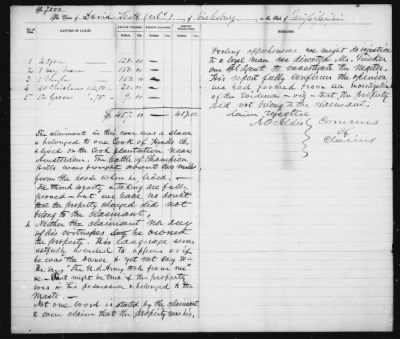 The Claim of David Scott (Col.) of Vicksburg in the State of Mississippi
NATURE OF CLAIM.
REMARKS.
1 4 Oxen 120 00
2 1 Bay Mare 150 00
3 150 00
4 40 Chickens
5 12 Geese .75 9 00
$ 457 00
The claimant in this case was a slave
& belonged to one Cook of Hinds Co.
& lived on the Cook plantation near
Amsterdam. The battle of Champion
Hills was fought about two miles
from the house where he lived. —
We think loyalty & taking are fully
proved — but we have no doubt
that the property charged did not
belong to the claimant,
& Neither the claimant nor any
of his witnesses say he owned
the property. His language seems
carefully worded to appear as if
he was the owner & yet not say so —
He says "the U.S. Army took from me"
&c — That might be true & the property
was in his possession & belonged to the
Master. —
Not one word is stated by the claimant
to even claim that the property was his,
Feeling apprehensive we might do injustice
to a loyal man we directed Mr.
our Spl. Agent to investigate the matter.
His report fully confirms the opinion
we had formed from an investigation
of the evidence viz that the property
did not belong to the claimant.
Claim rejected
A. O. Aldis
Comrs
of
Claims